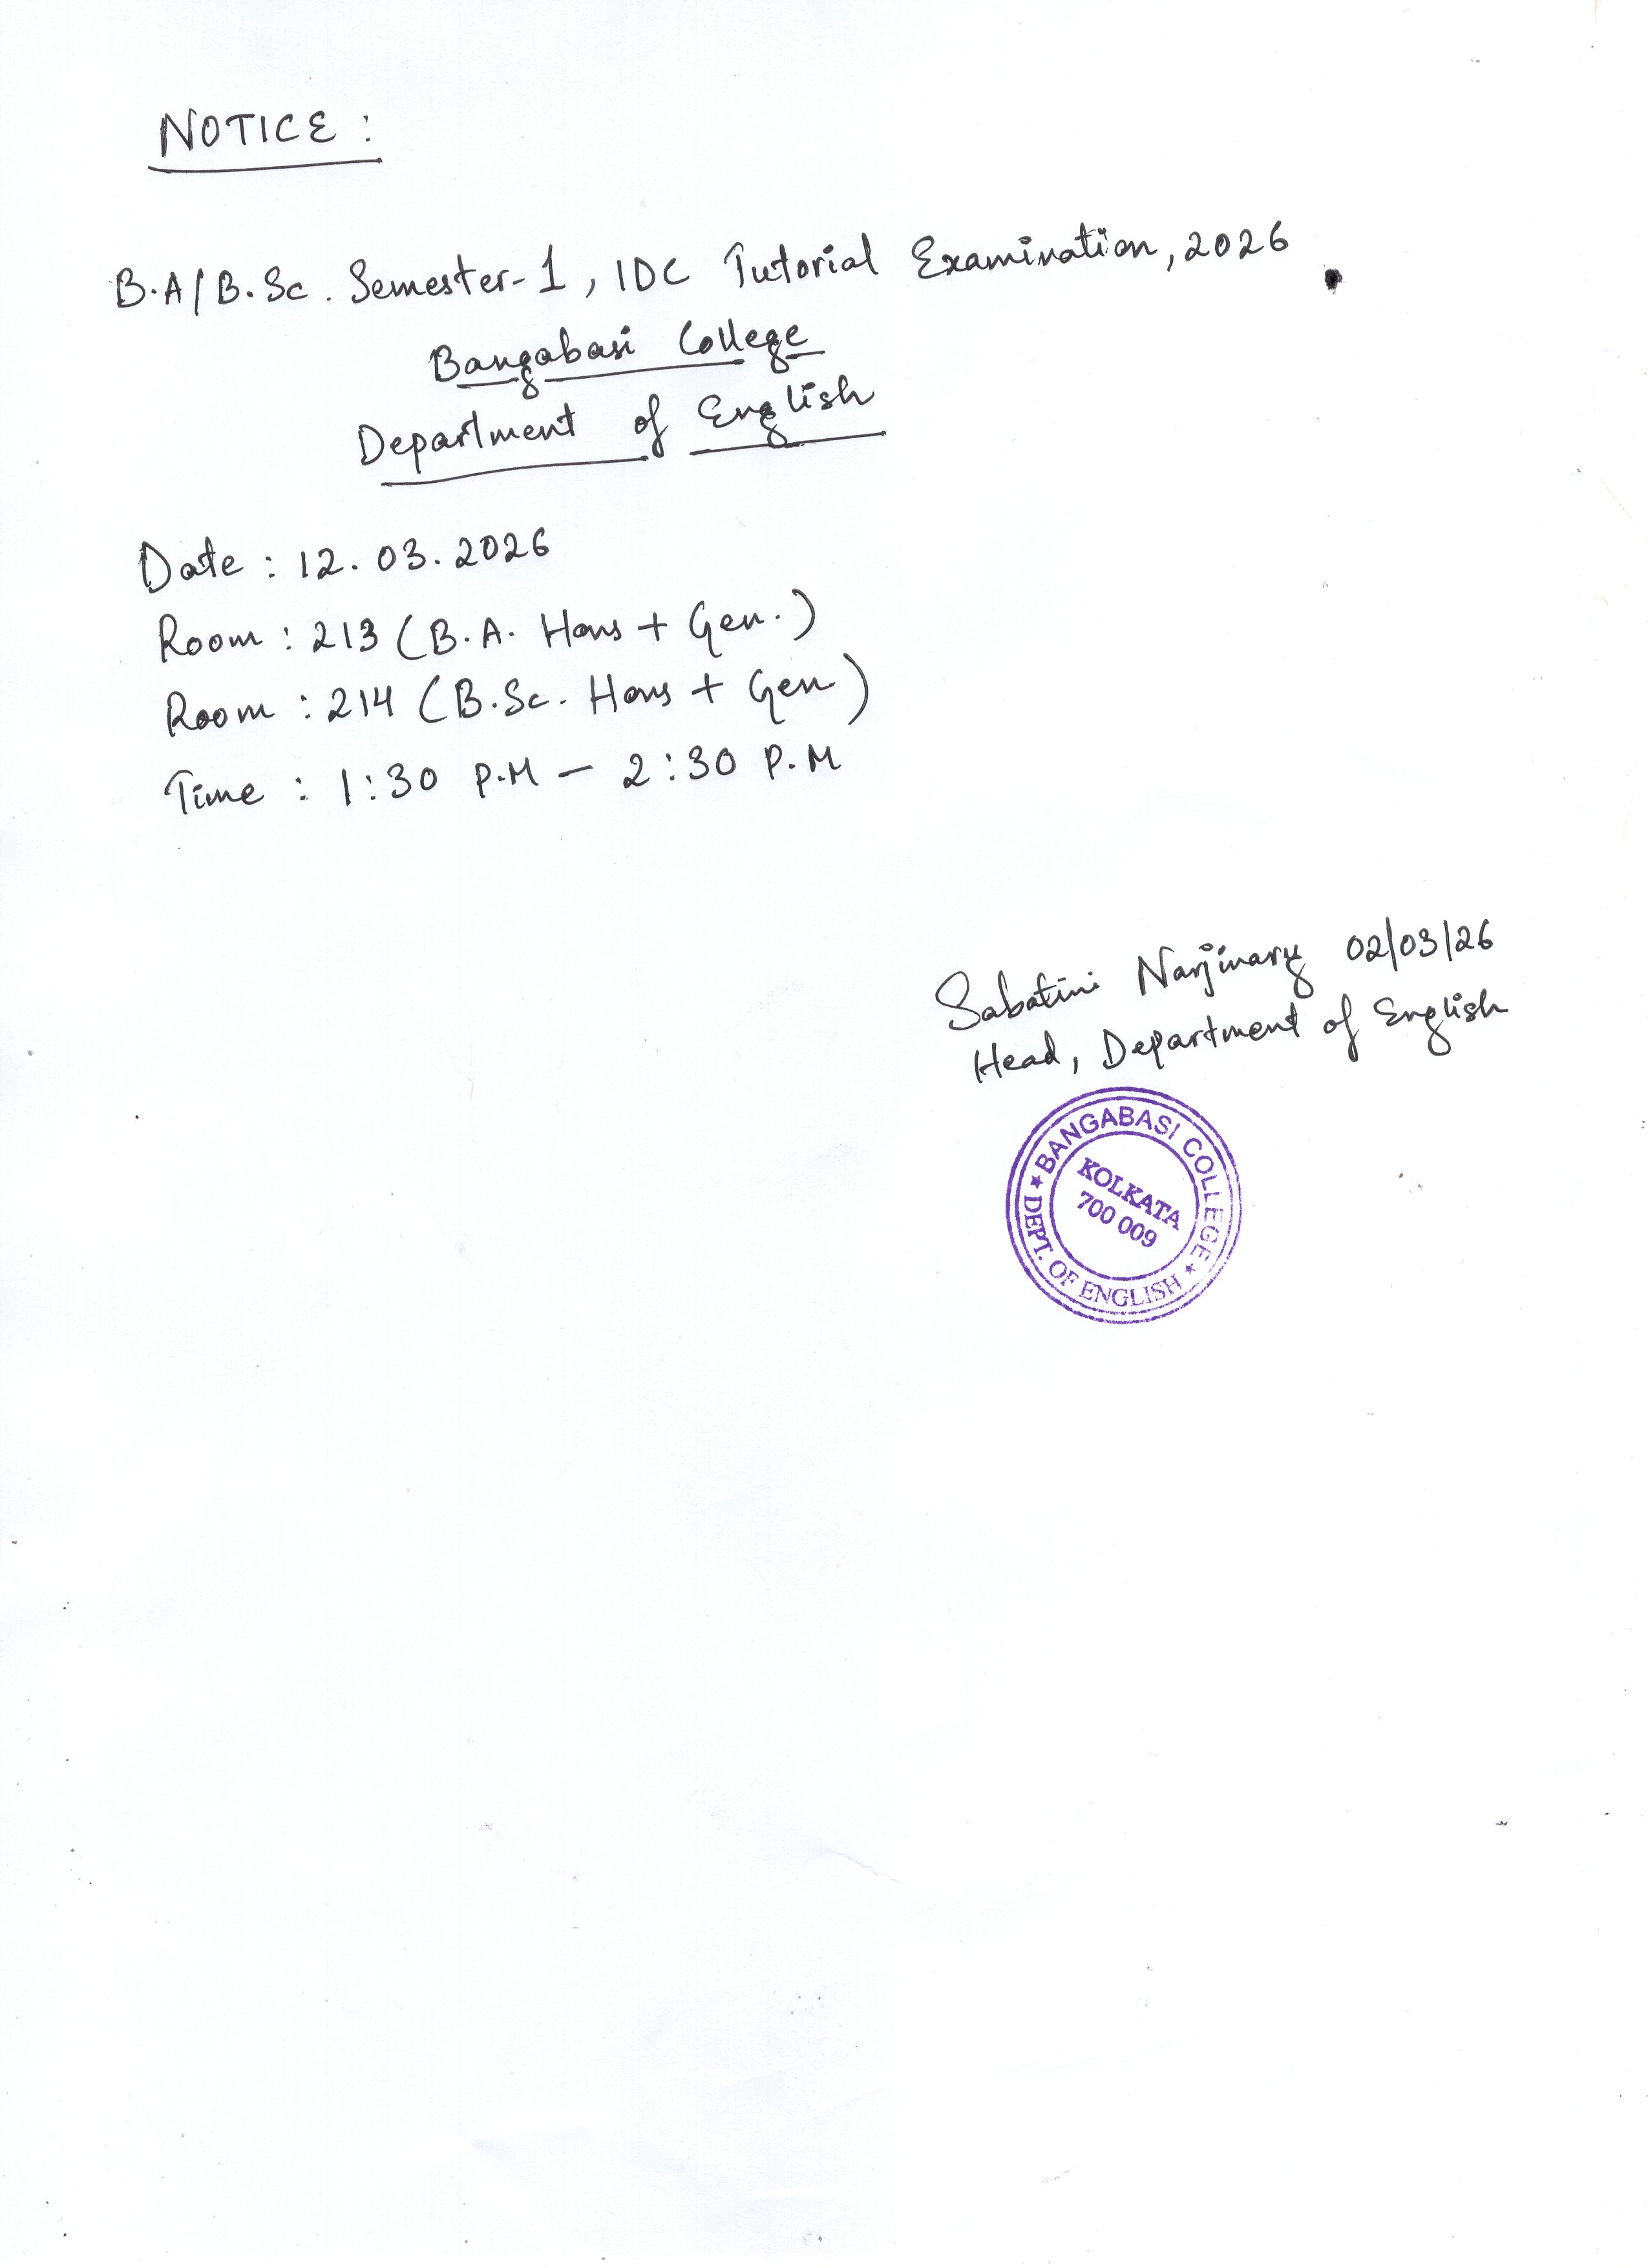 NOTICE :
B.A/B.Sc. Semester-1, IDC Tutorial Examination, 2026
Bangabasi College
Department of English
Date : 12.03.2026
Room : 213 (B.A. Hons + Gen.)
Room : 214 (B.Sc. Hons + Gen)
Time : 1:30 P.M – 2:30 P.M
Sabatini Narjinary 02/03/26
Head, Department of English
★ BANGABASI COLLEGE ★
KOLKATA
700 009
DEPT. OF ENGLISH